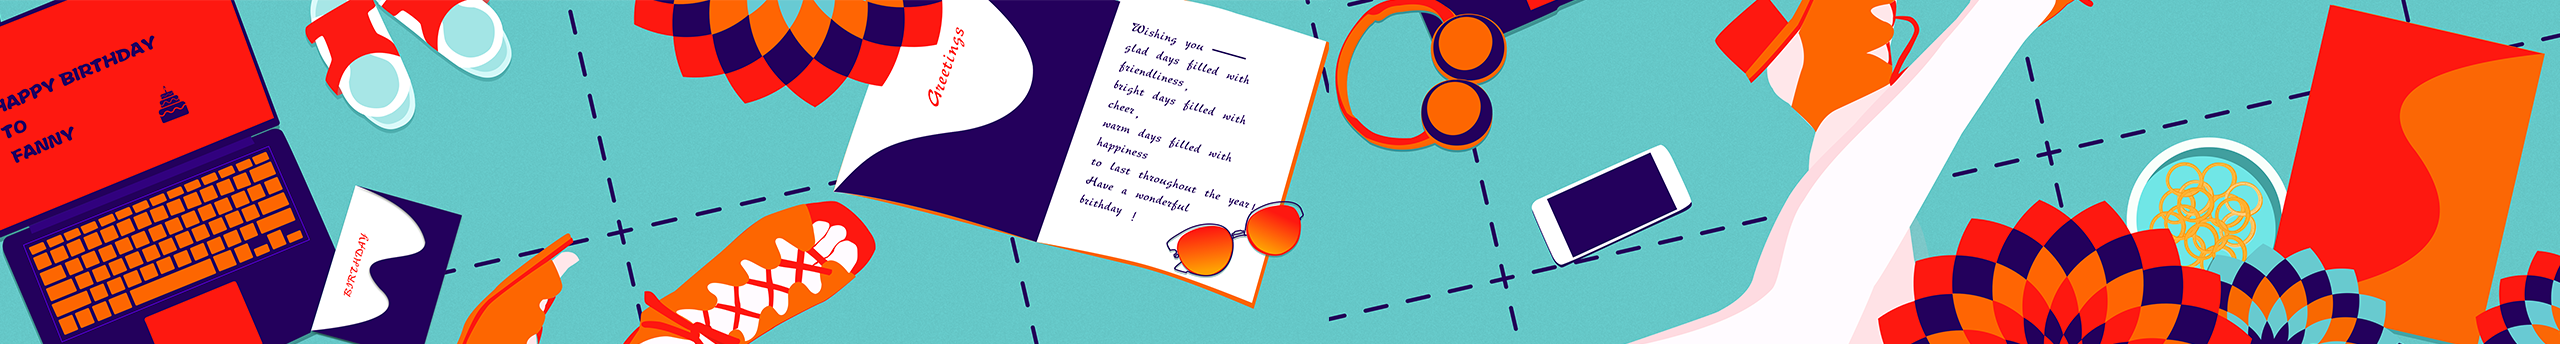 HAPPY BIRTHDAY
TO
FANNY
BIRTHDAY
Greetings
Wishing you
glad days filled with
friendliness,
bright days filled with
cheer,
warm days filled with
happiness
to last throughout the year!
Have a wonderful
birthday !